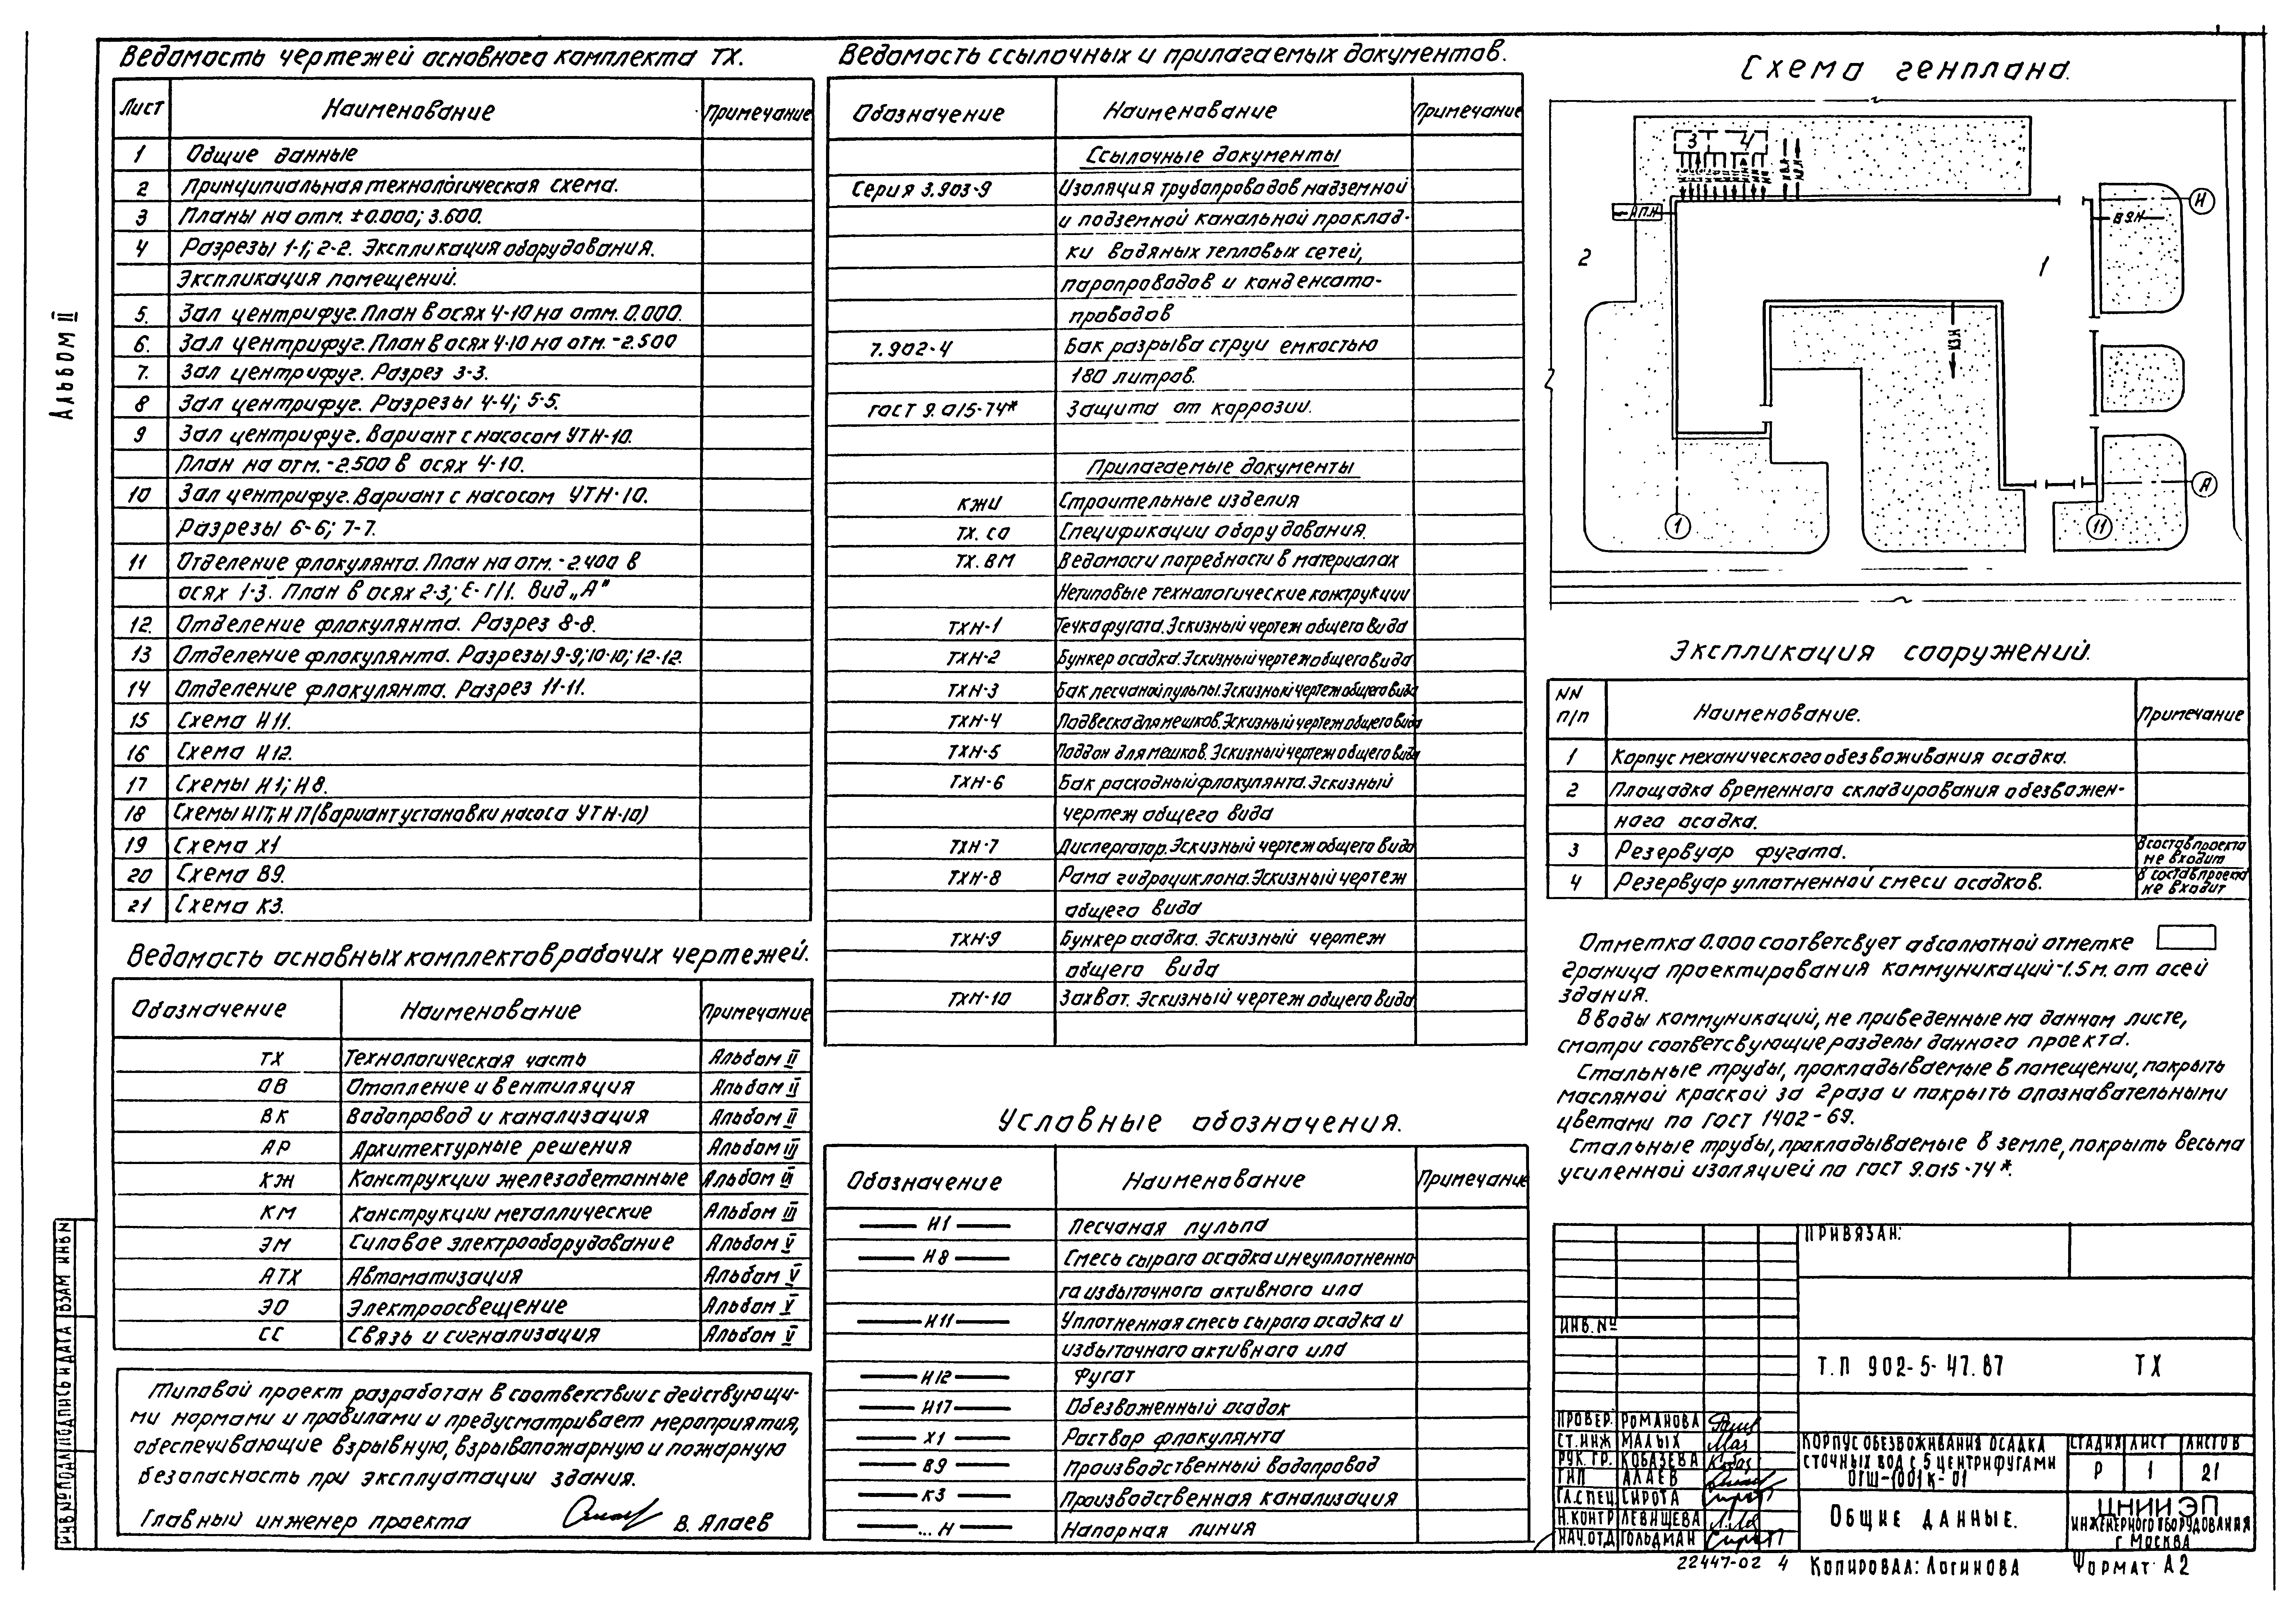 Альбом II
Ведомость чертежей основного комплекта ТХ.
Лист Наименование Примечание
1 Общие данные
2 Принципиальная технологическая схема.
3 Планы на отм. ±0.000; 3.600.
4 Разрезы 1-1; 2-2. Экспликация оборудования.
Экспликация помещений.
5. Зал центрифуг. План в осях 4-10 на отм. 0.000.
6. Зал центрифуг. План в осях 4-10 на отм. -2.500
7. Зал центрифуг. Разрез 3-3.
8 Зал центрифуг. Разрезы 4-4; 5-5.
9 Зал центрифуг. Вариант с насосом УТН-10.
План на отм. -2.500 в осях 4-10.
10 Зал центрифуг. Вариант с насосом УТН-10.
Разрезы 6-6; 7-7.
11 Отделение флокулянта. План на отм. -2.400 в
осях 1-3. План в осях 2-3; Е-Г/1. Вид „А"
12. Отделение флокулянта. Разрез 8-8.
13 Отделение флокулянта. Разрезы 9-9; 10-10; 12-12.
14 Отделение флокулянта. Разрез 11-11.
15 Схема И11.
16 Схема И12.
17 Схемы И1; И8.
18 Схемы И17; И17 (вариант установки насоса УТН-10)
19 Схема Х1
20 Схема В9.
21 Схема К3.
Ведомость основных комплектов рабочих чертежей.
Обозначение Наименование Примечание
ТХ Технологическая часть Альбом II
ОВ Отопление и вентиляция Альбом II
ВК Водопровод и канализация Альбом II
АР Архитектурные решения Альбом III
КЖ Конструкции железобетонные Альбом III
КМ Конструкции металлические Альбом III
ЭМ Силовое электрооборудование Альбом V
АТХ Автоматизация Альбом V
ЭО Электроосвещение Альбом V
СС Связь и сигнализация Альбом V
Типовой проект разработан в соответствии с действующи-
ми нормами и правилами и предусматривает мероприятия,
обеспечивающие взрывную, взрывопожарную и пожарную
безопасность при эксплуатации здания.
Главный инженер проекта В. Алаев
Ведомость ссылочных и прилагаемых документов.
Обозначение Наименование Примечание
Ссылочные документы
Серия 3.903-9 Изоляция трубопроводов надземной
и подземной канальной проклад-
ки водяных тепловых сетей,
паропроводов и конденсато-
проводов
7.902-4 Бак разрыва струи емкостью
180 литров.
ГОСТ 9.015-74* Защита от коррозии.
Прилагаемые документы
КЖИ Строительные изделия
ТХ. СО Спецификации оборудования.
ТХ. ВМ Ведомости потребности в материалах
Нетиповые технологические конструкции
ТХН-1 Течка фугата. Эскизный чертеж общего вида
ТХН-2 Бункер осадка. Эскизный чертеж общего вида
ТХН-3 Бак песчаной пульпы. Эскизный чертеж общего вида
ТХН-4 Подвеска для мешков. Эскизный чертеж общего вида
ТХН-5 Поддон для мешков. Эскизный чертеж общего вида
ТХН-6 Бак расходный флокулянта. Эскизный
чертеж общего вида
ТХН-7 Диспергатор. Эскизный чертеж общего вида
ТХН-8 Рама гидроциклона. Эскизный чертеж
общего вида
ТХН-9 Бункер осадка. Эскизный чертеж
общего вида
ТХН-10 Захват. Эскизный чертеж общего вида
Условные обозначения.
Обозначение Наименование Примечание
И1 Песчаная пульпа
И8 Смесь сырого осадка и неуплотненно
го избыточного активного ила
И11 Уплотненная смесь сырого осадка и
избыточного активного ила
И12 Фугат
И17 Обезвоженный осадок
Х1 Раствор флокулянта
В9 Производственный водопровод
К3 Производственная канализация
...Н Напорная линия
Схема генплана.
3 4
В9.Н
2
1
И
А
1
11
Экспликация сооружений.
NN Наименование. Примечание
п/п
1 Корпус механического обезвоживания осадка.
2 Площадка временного складирования обезвожен-
ного осадка.
3 Резервуар фугата. В состав проекта
не входит
4 Резервуар уплотненной смеси осадков. В состав проекта
не входит
Отметка 0.000 соответсвует абсолютной отметке
Граница проектирования коммуникаций -1.5м. от осей
здания.
Вводы коммуникаций, не приведенные на данном листе,
смотри соответсвующие разделы данного проекта.
Стальные трубы, прокладываемые в помещении, покрыть
масляной краской за 2 раза и покрыть опознавательными
цветами по ГОСТ 1402-69.
Стальные трубы, прокладываемые в земле, покрыть весьма
усиленной изоляцией по ГОСТ 9.015-74*.
Привязан:
Инв. №
Т.П 902-5-47.87 ТХ
Провер. Романова
Ст.инж Малых
Рук. гр. Кобазева
ГИП Алаев
Гл.спец Сирота
Н.контр Левищева
Нач.отд Гольдман
Корпус обезвоживания осадка
сточных вод с 5 центрифугами
ОГШ-1001К-01
Стадия Лист Листов
Р 1 21
Общие данные.
ЦНИИЭП
инженерного оборудования
г Москва
22447-02 4
Копировал: Логинова
Формат А2
Инв № подл Подпись и дата Взам инв N